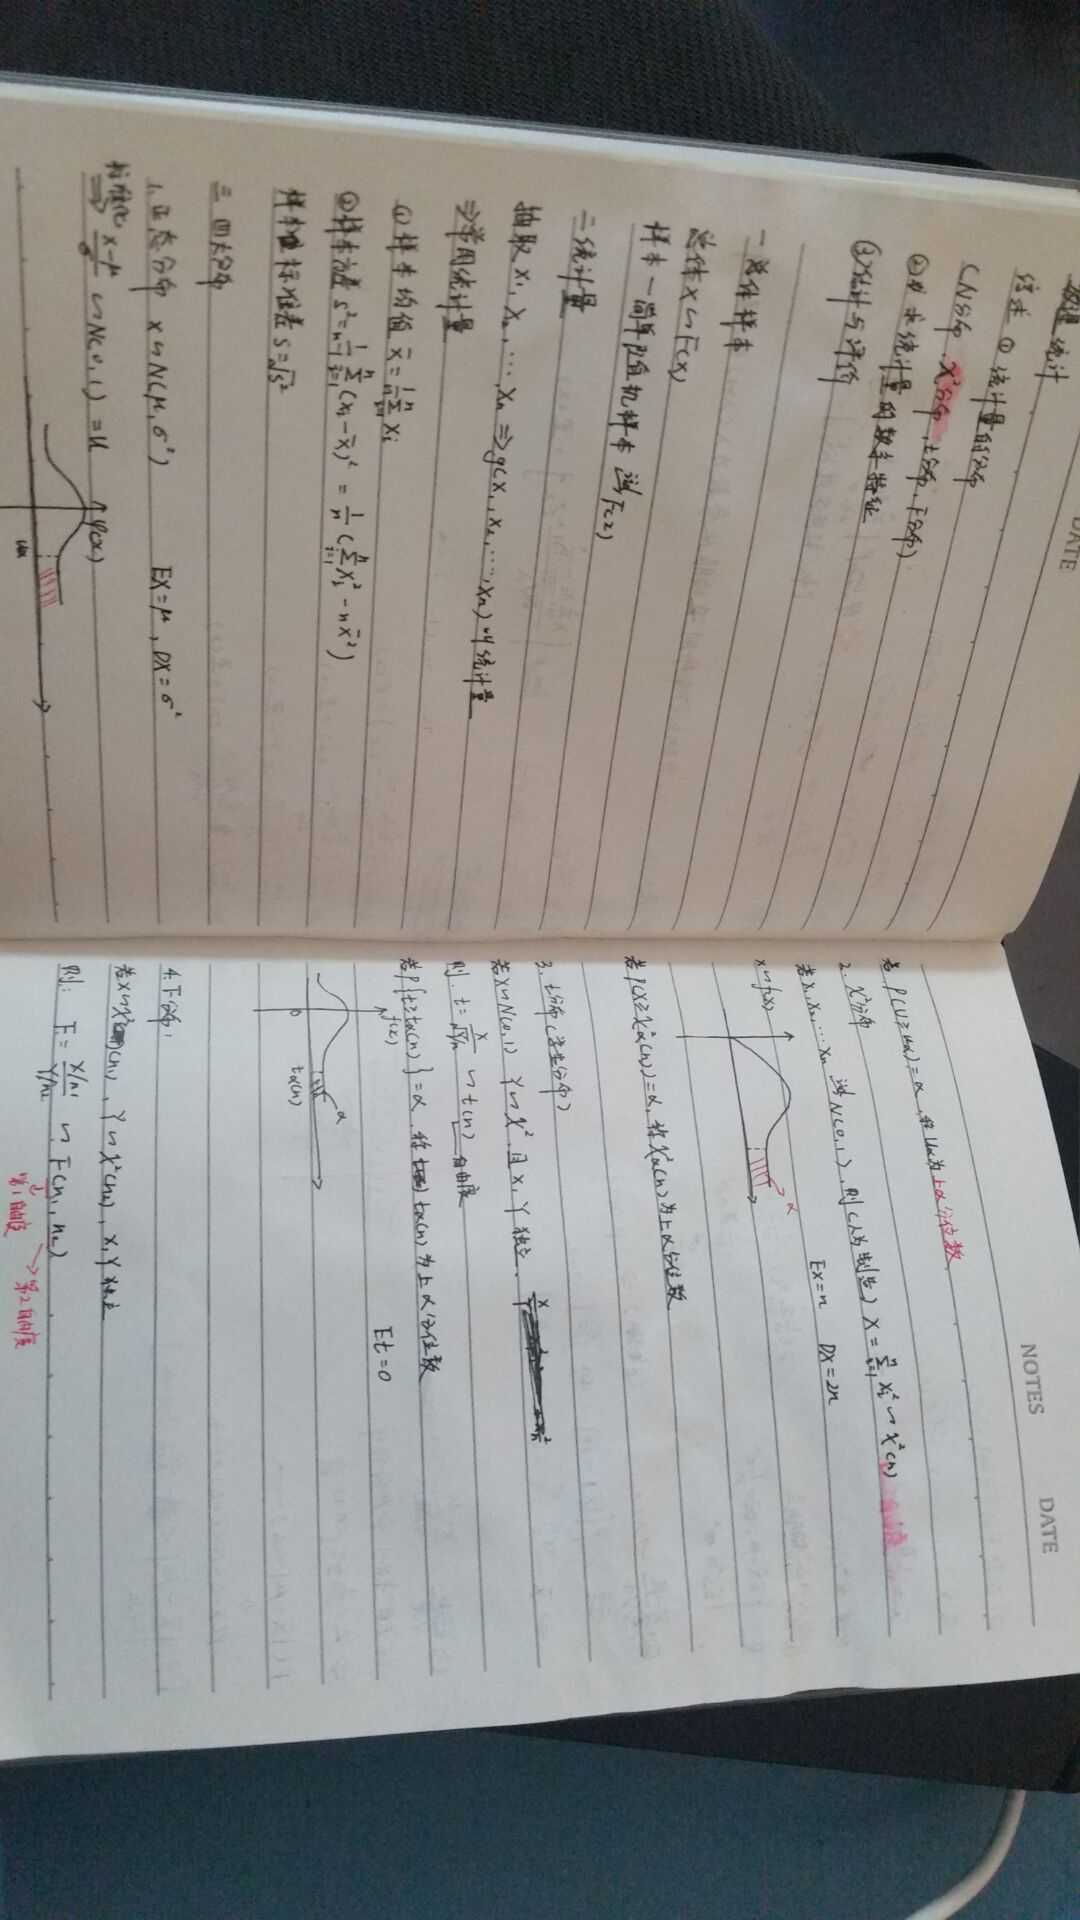 DATE
数理统计
综述 ① 统计量的分布
(N分布、χ²分布、t分布、F分布)
② 求统计量的数字特征
③ 估计与评价
一 总体样本
总体 X ∽ F(X)
样本—简单随机样本
二 统计量
抽取 X₁, X₂, ⋯, Xₙ ⇒ g(X₁, X₂, ⋯, Xₙ) 叫统计量
⇒ 常用统计量
① 样本均值 x̄ = 1/n Σⁿᵢ₌₁ Xᵢ
② 样本方差 S² = 1/(n-1) Σⁿᵢ₌₁ (Xᵢ - x̄)² = 1/n (Σⁿᵢ₌₁ Xᵢ² - n x̄²)
样本 标准差 S = √S²
三 四大分布
1. 正态分布 X ∽ N(μ, σ²) EX = μ, DX = σ²
标准化 ⇒ (X-μ)/σ ∽ N(0, 1) = U
φ(x)
Uα
NOTES DATE
若 P(U ≥ Uα) = α, 称 Uα 为上α分位数
2. χ²分布
若 X₁, X₂, ⋯ Xₙ N(0, 1), 则 X = Σⁿᵢ₌₁ Xᵢ² ∽ χ²(n)
EX = n DX = 2n
X ∽ f(x)
α
若 P(X ≥ χ²α(n)) = α, 称 χ²α(n) 为上α分位数
3. t分布(学生分布)
若 X ∽ N(0, 1) Y ∽ χ², 且 X, Y 独立,
则. t = X/√(Y/n) ∽ t(n) 自由度
若 P{t ≥ tα(n)} = α, 称 tα(n) 为上α分位数
Et = 0
f(x)
α
0 tα(n)
4. F分布:
若 X ∽ χ²(n₁), Y ∽ χ²(n₂), X, Y 独立
则: F = (X/n₁)/(Y/n₂) ∽ F(n₁, n₂)
第1自由度 第2自由度